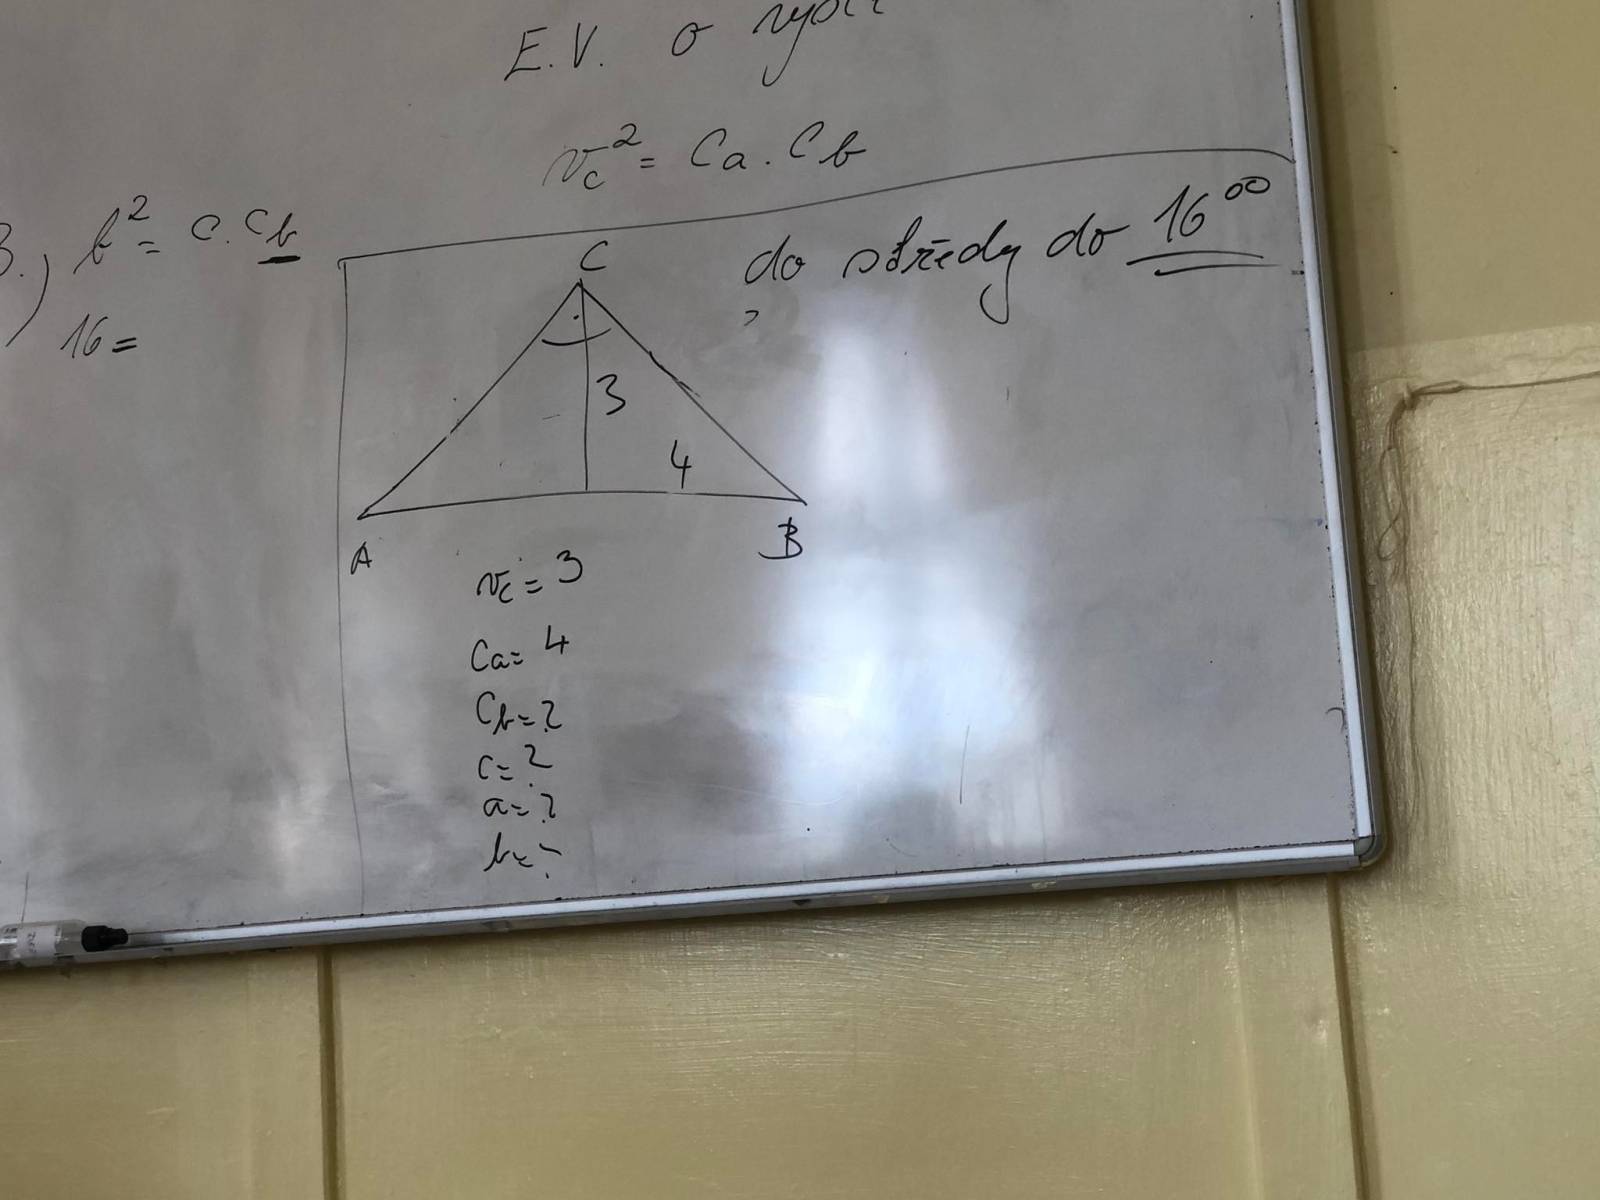 E.V. o
v_c² = Ca . Cb
3.) b² = c . Cb
16 =
do středy do 16⁰⁰
C
3
4
A
B
v_c = 3
Ca = 4
Cb = ?
c = ?
a = ?
b = ?